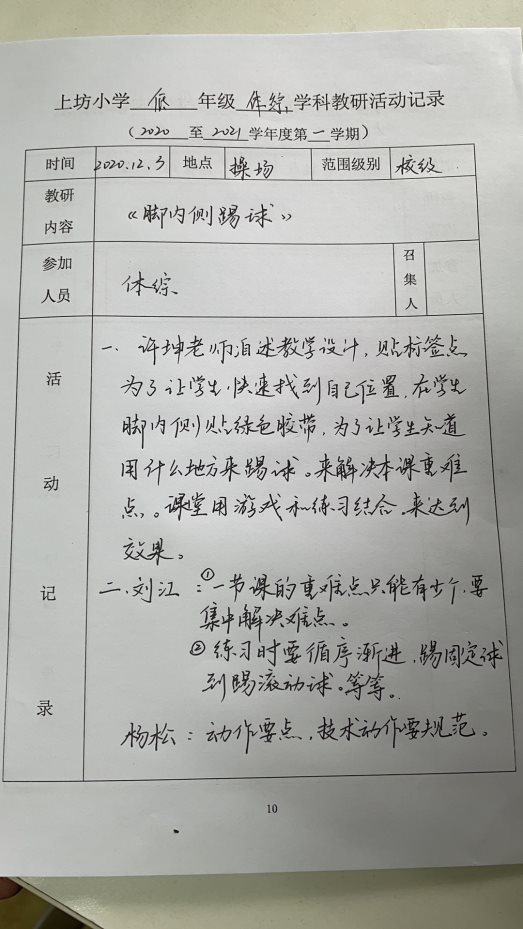 上坊小学 低 年级 体综 学科教研活动记录
（2020 至 2021 学年度第 一 学期）
时间 2020.12.3 地点 操场 范围级别 校级
教研内容 《脚内侧踢球》
参加人员 体综 召集人
活动记录
一、许坤老师自述教学设计，贴标签点
为了让学生快速找到自己位置，在学生
脚内侧贴绿色胶带，为了让学生知道
用什么地方来踢球。来解决本课重难
点。课堂用游戏和练习结合，来达到
效果。
二、刘江：①一节课的重难点只能有少个，要
集中解决难点。
②练习时要循序渐进，踢固定球
到踢滚动球。等等。
杨松：动作要点，技术动作要规范。
10